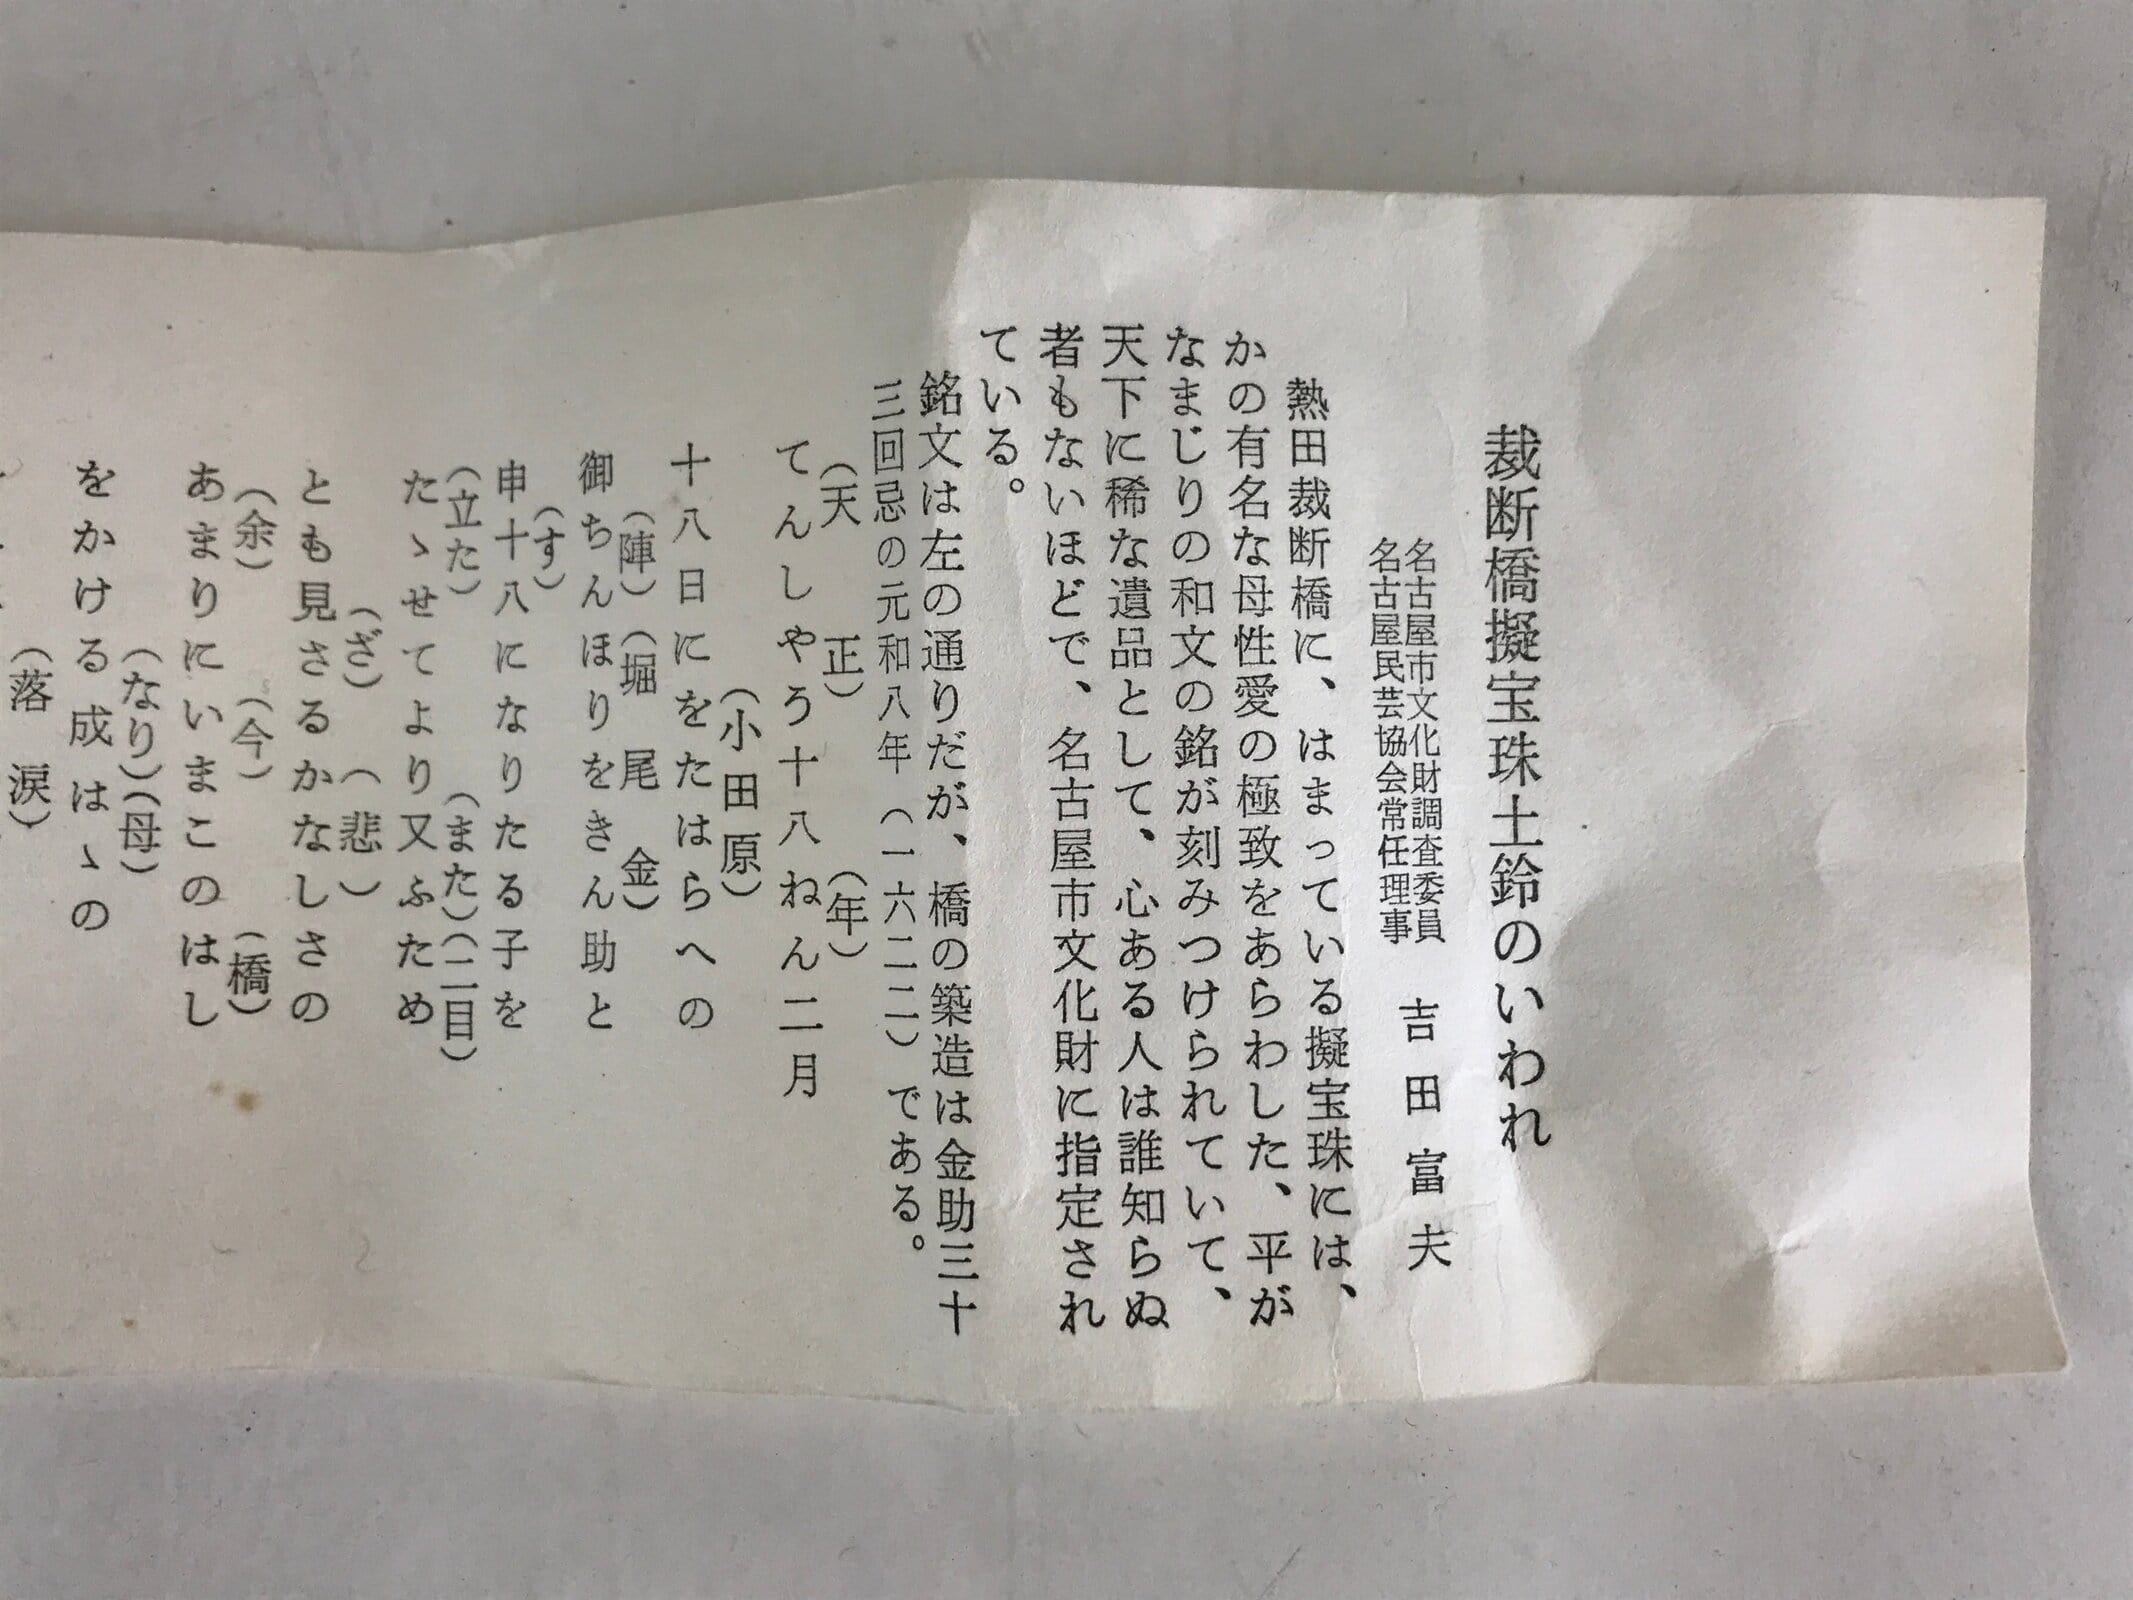 裁断橋擬宝珠土鈴のいわれ
名古屋市文化財調査委員
名古屋民芸協会常任理事
吉田富夫
熱田裁断橋に、はまっている擬宝珠には、
かの有名な母性愛の極致をあらわした、平が
なまじりの和文の銘が刻みつけられていて、
天下に稀な遺品として、心ある人は誰知らぬ
者もないほどで、名古屋市文化財に指定され
ている。
銘文は左の通りだが、橋の築造は金助三十
三回忌の元和八年(一六二二)である。
(天正)(年)
てんしやう十八ねん二月
(小田原)
十八日にをたはらへの
(陣)(堀尾金)
御ちんほりをきん助と
(す)
申十八になりたる子を
(立た)(また)(二目)
たゝせてより又ふため
(ざ)(悲)
とも見さるかなしさの
(余)(今)(橋)
あまりにいまこのはし
(なり)(母)
をかける成はゝの
(落涙)